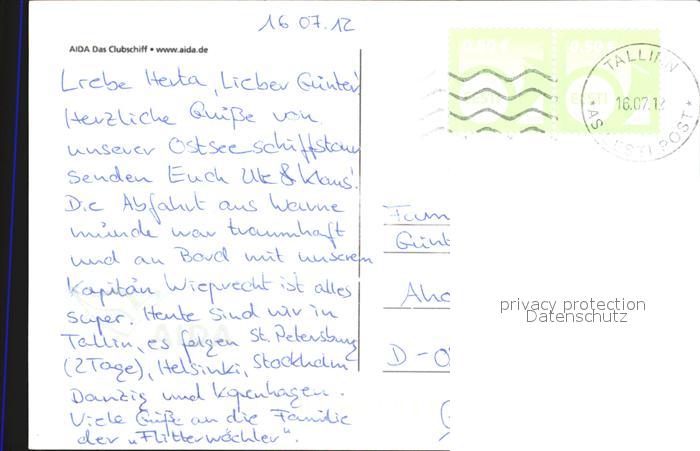 16 07. 12
AIDA Das Clubschiff • www.aida.de
Liebe Herta, Lieber Günter!
Herzliche Grüße von
unserer Ostseeschiffstour
senden Euch Ute & Klaus!
Die Abfahrt aus Warne
münde war traumhaft
und an Bord mit unserem
Kapitän Wieprecht ist alles
super. Heute sind wir in
Tallin, es folgen St. Petersburg
(2 Tage), Helsinki, Stockholm
Danzig und Kopenhagen.
Viele Grüße an die Familie
der „Flitterwöchler".
0.50 €
0.50 €
EESTI
EESTI
TALLINN
16.07.12
* AS EESTI POST *
Fam
Günt
Aho
D - 0
privacy protection
Datenschutz
AIDA